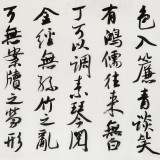 色入簾青談笑
有鴻儒往來無白
丁可以調素琴閱
金經無絲竹之亂
耳無案牘之勞形